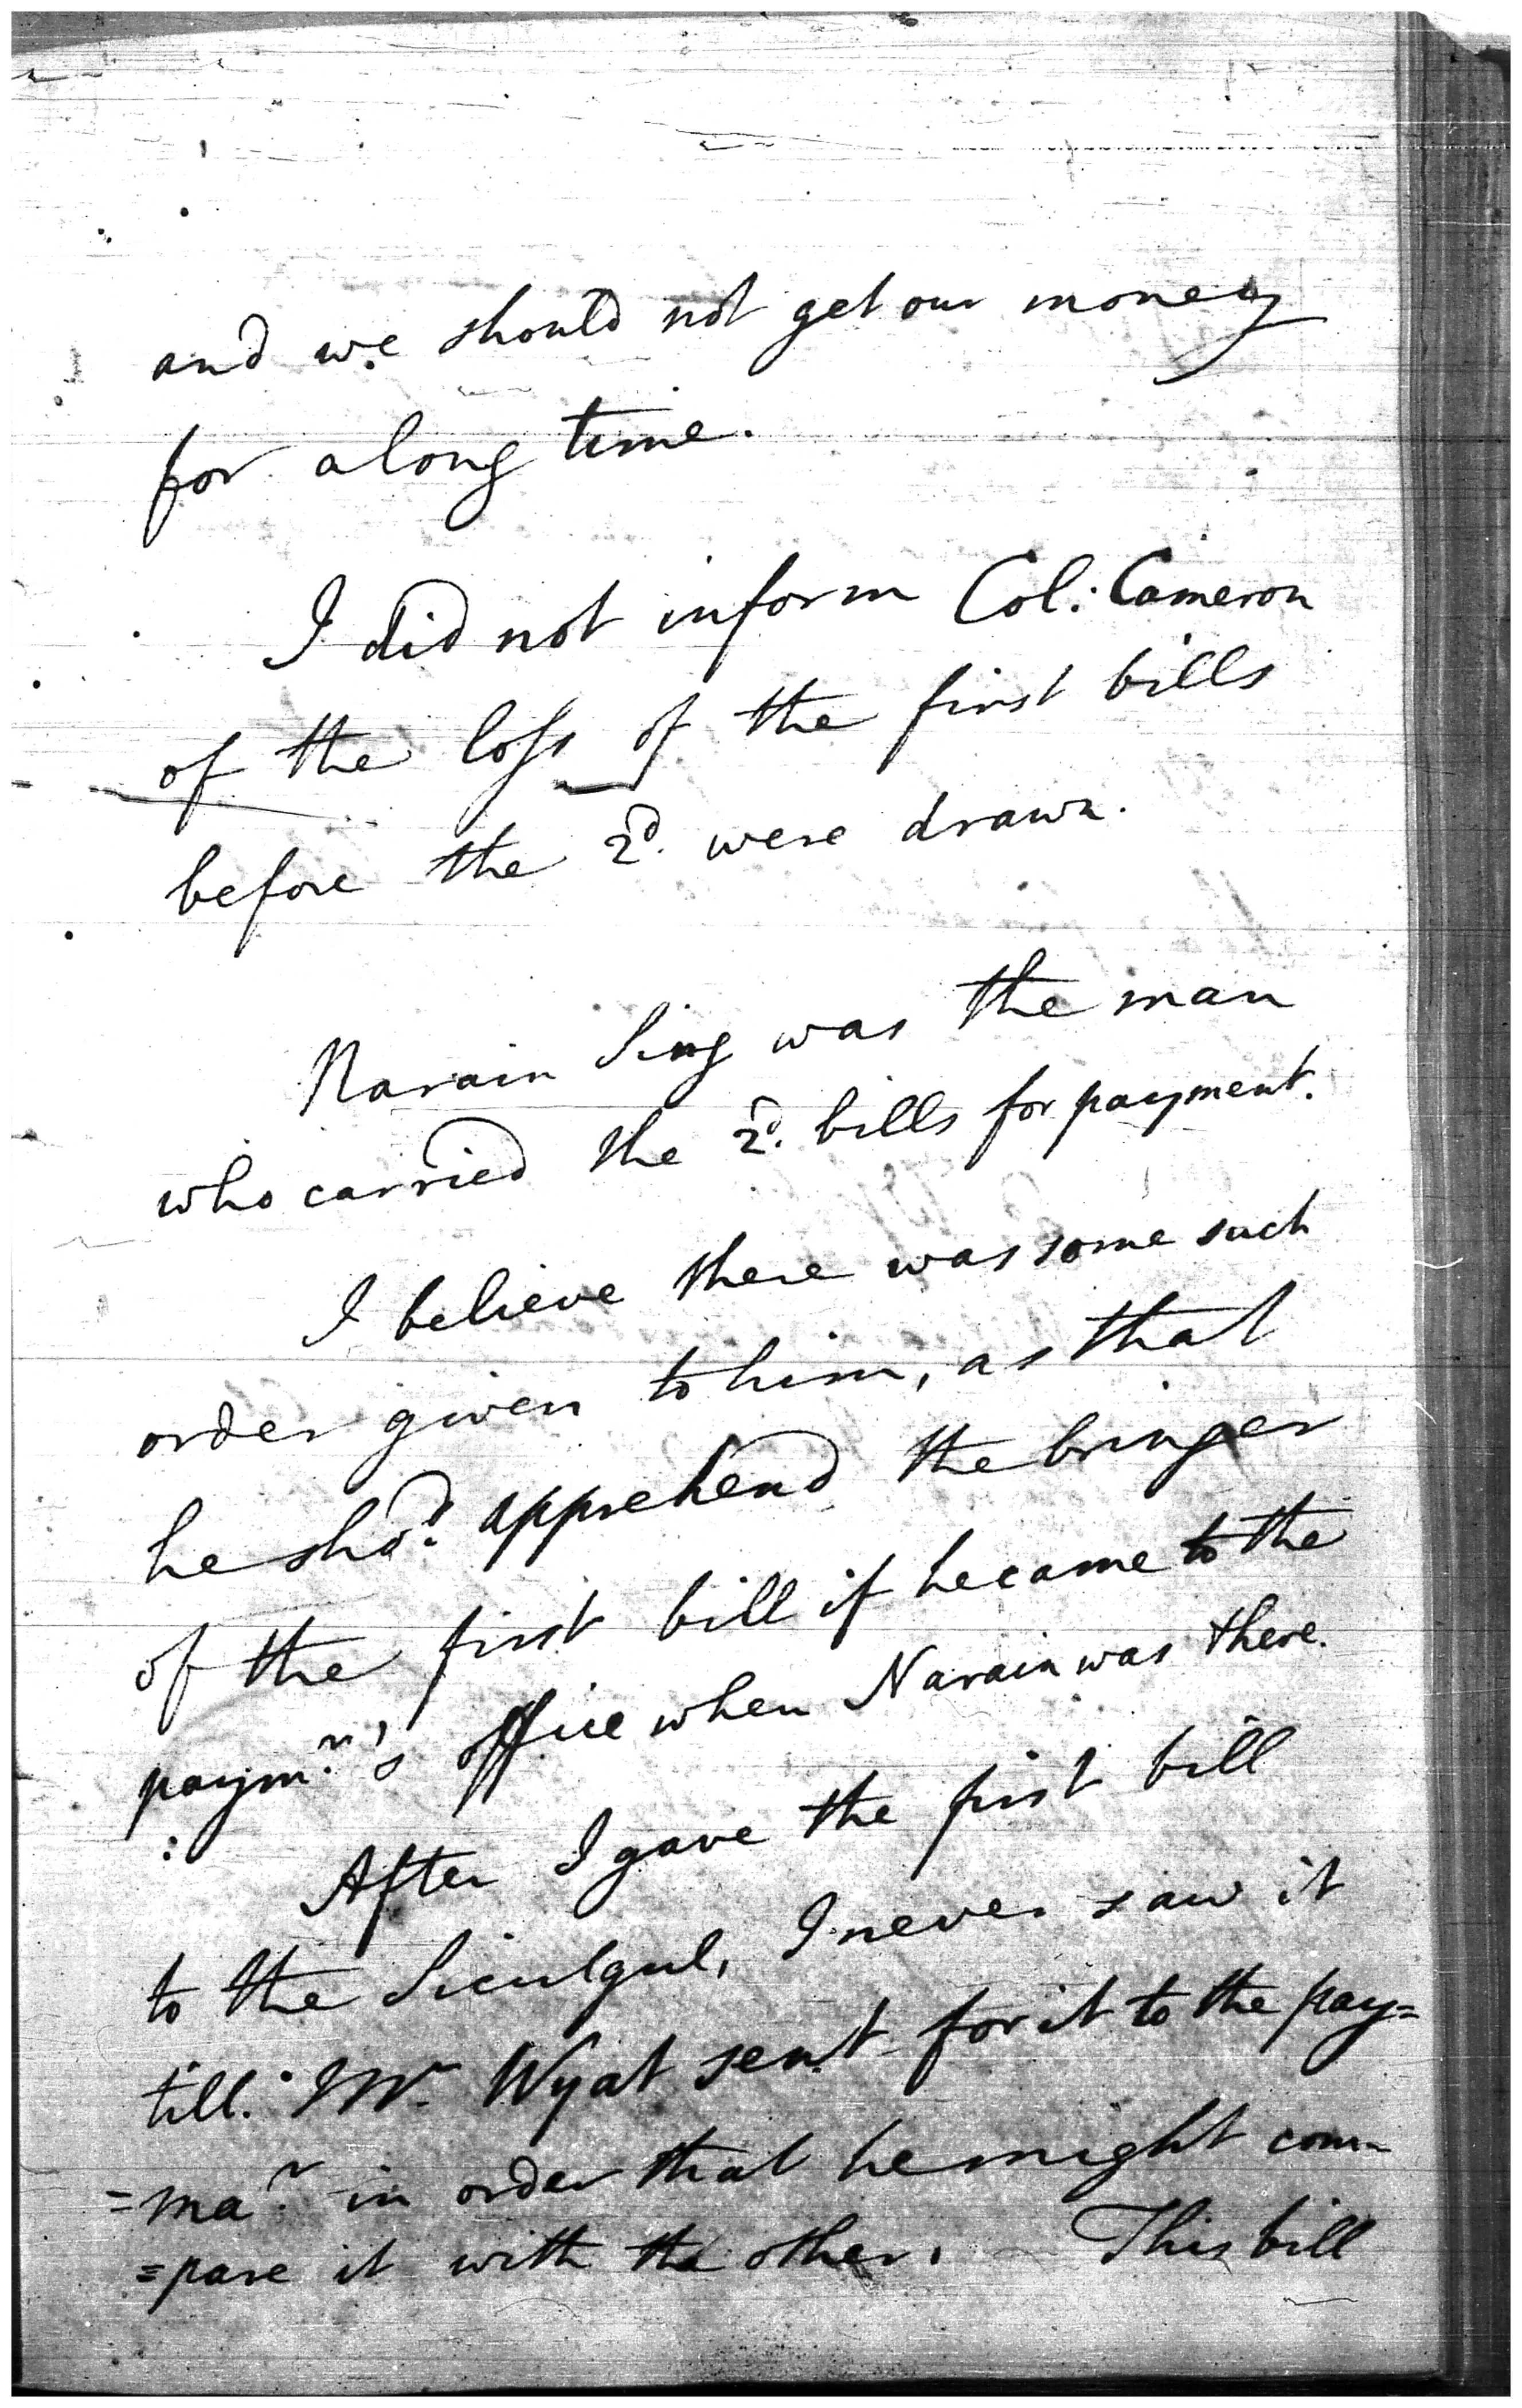 and we should not get our money
for a long time.
I did not inform Col: Cameron
of the loss of the first bills
before the 2d. were drawn.
Narain Sing was the man
who carried the 2d. bills for payment.
I believe there was some such
order given to him, as that
he shod. apprehend the bringer
of the first bill if he came to the
paymr.'s office when Narain was there.
After I gave the first bill
to the I never saw it
till Mr. Wyat sent for it to the pay=
=mar. in order that he might com-
=pare it with the other. This bill